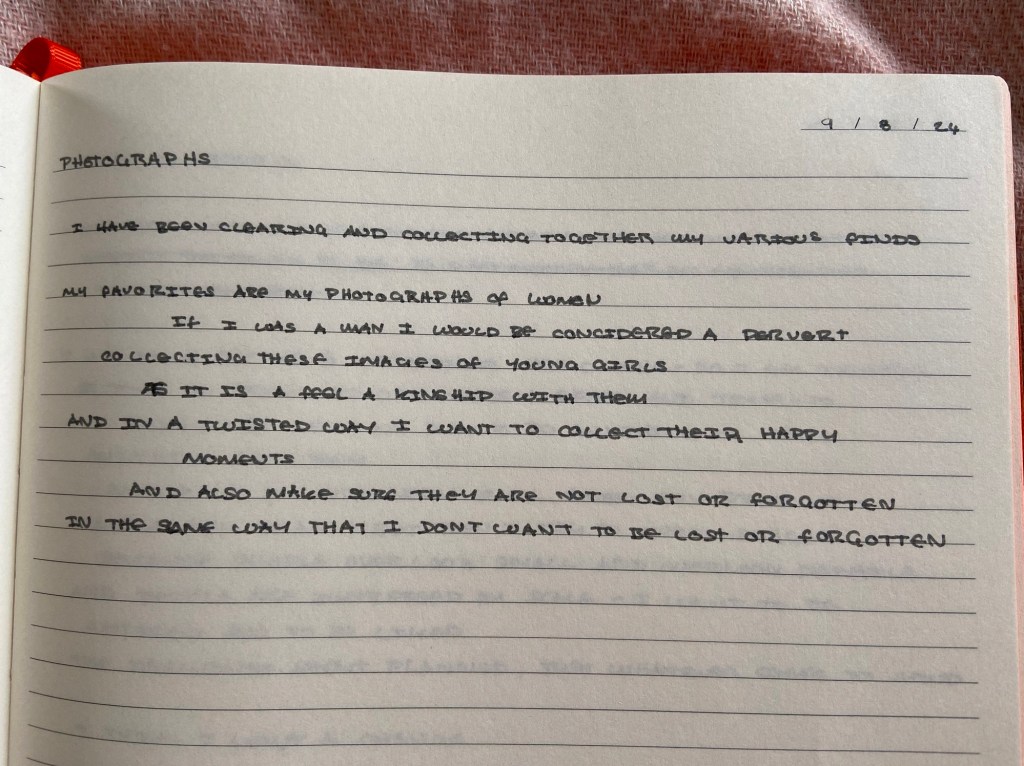 9 / 8 / 24
PHOTOGRAPHS
I HAVE BEEN CLEARING AND COLLECTING TOGETHER MY VARIOUS FINDS
MY FAVORITES ARE MY PHOTOGRAPHS OF WOMEN
IF I WAS A MAN I WOULD BE CONCIDERED A PERVERT
COLLECTING THESE IMAGES OF YOUNG GIRLS
AS IT IS A FEEL A KINSHIP WITH THEM
AND IN A TWISTED WAY I WANT TO COLLECT THEIR HAPPY
MOMENTS
AND ALSO MAKE SURE THEY ARE NOT LOST OR FORGOTTEN
IN THE SAME WAY THAT I DONT WANT TO BE LOST OR FORGOTTEN